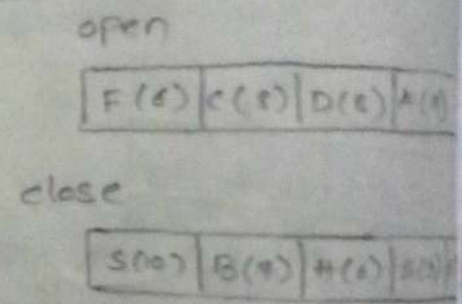 open
F(6) C(8) D(8)
close
S(10) B(9) A(6)